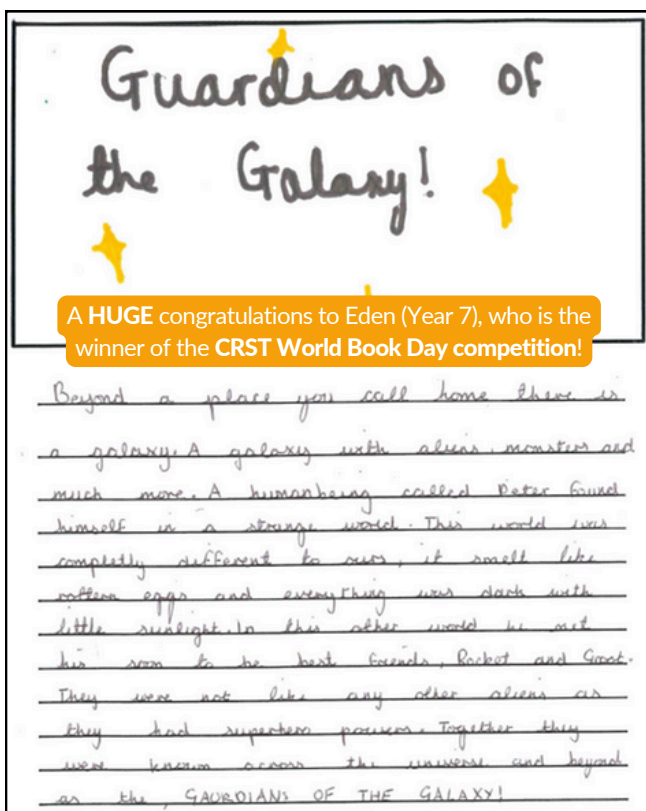 Guardians of
the Galaxy!
A HUGE congratulations to Eden (Year 7), who is the
winner of the CRST World Book Day competition!
Beyond a place you call home there is
a galaxy. A galaxy with aliens, monsters and
much more. A humanbeing called Peter found
himself in a strange world. This world was
completly different to ours, it smelt like
rottern eggs and everything was dark with
little sunlight. In this other world he met
his soon to be best friends, Rocket and Groot.
They were not like any other aliens as
they had superhero powers. Together they
were known across the universe and beyond
as the, GAURDIANS OF THE GALAXY!